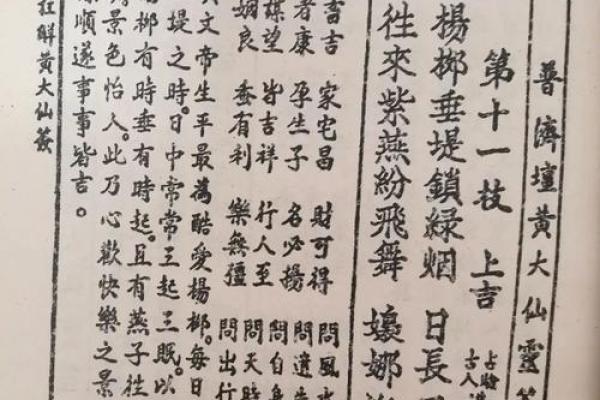 普濟壇黃大仙靈簽
第十一枝 上吉 占驗古人
楊柳垂堤鎖綠烟 日長
往來紫燕紛飛舞 嬝娜
畜吉 家宅昌 財可得 問風水
者康 孕生子 名必揚 問遺失
謀望 皆吉祥 行人至 問自身
姻良 蚕有利 樂無疆 問天時
問出行
文帝生平最為酷愛楊柳。每日
堤之時。日中常常三起三眠。以
柳有時垂。有時起。且有燕子往
景色怡人。此乃心歡快樂之景
順遂事事皆吉。
聯黃大仙簽